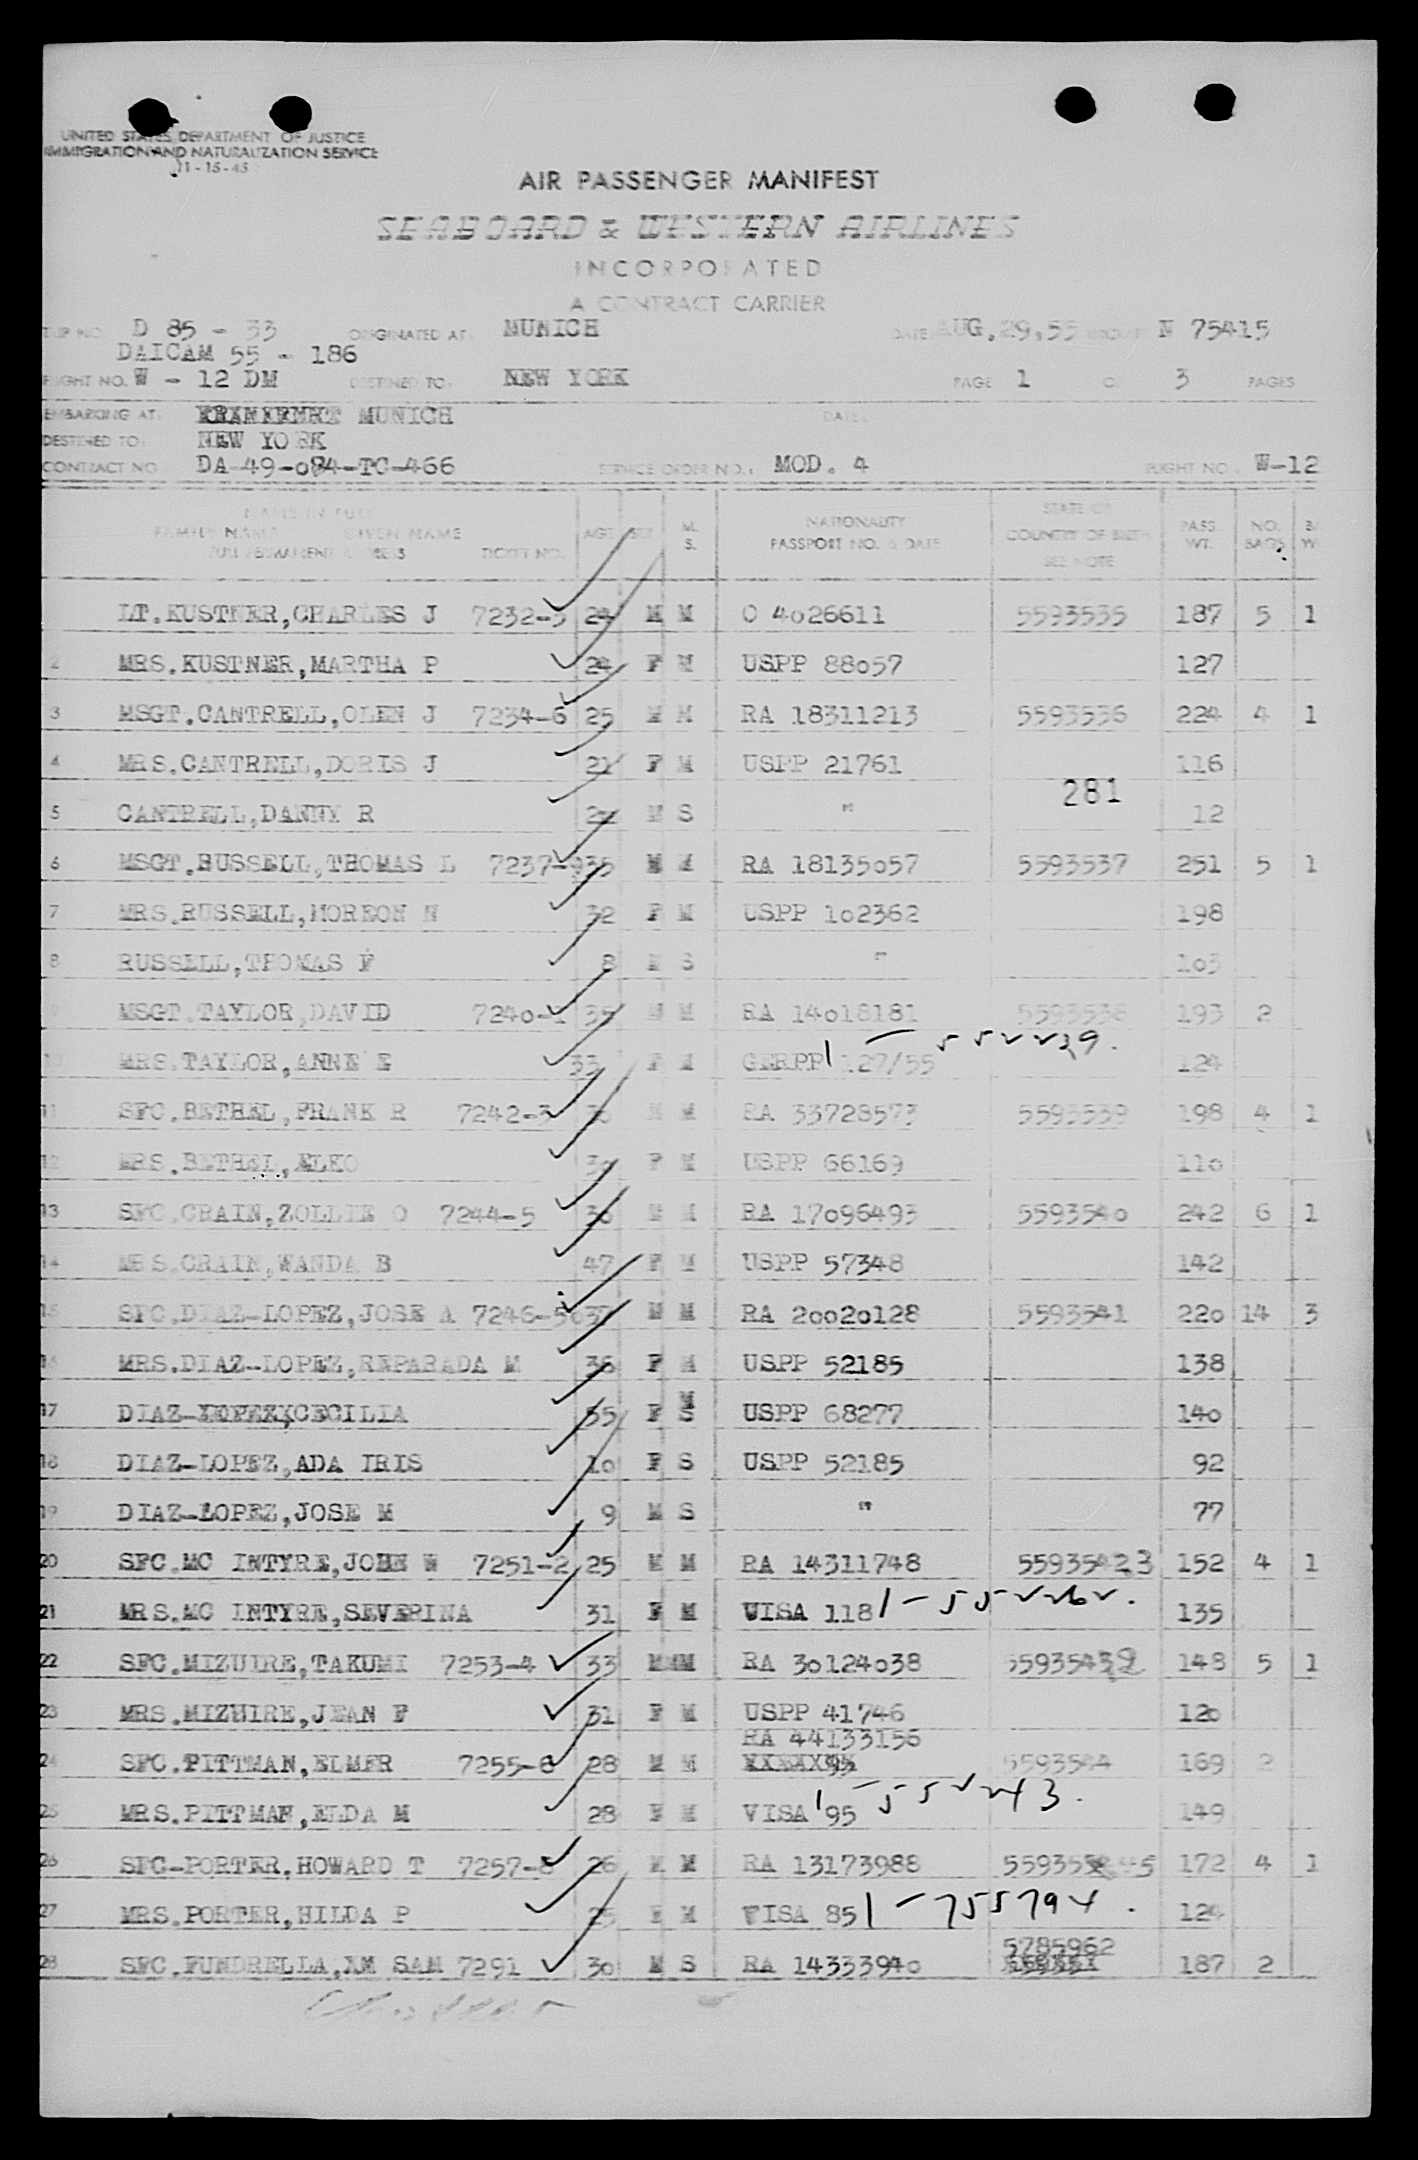 UNITED STATES DEPARTMENT OF JUSTICE
IMMIGRATION AND NATURALIZATION SERVICE
11-15-45
AIR PASSENGER MANIFEST
SEABOARD & WESTERN AIRLINES
INCORPORATED
A CONTRACT CARRIER
TRIP NO. D 85 - 33 ORIGINATED AT: MUNICH DATE AUG.29,55 N 75415
DAICAM 55 - 186
FLIGHT NO. W - 12 DM DESTINED TO: NEW YORK PAGE 1 OF 3 PAGES
EMBARKING AT: MUNICH DATE:
DESTINED TO: NEW YORK
CONTRACT NO DA-49-084-TC-466 SERVICE ORDER NO.: MOD. 4 FLIGHT NO.: W-12
NAMES IN FULL
FAMILY NAME GIVEN NAME
FULL PERMANENT ADDRESS TICKET NO. AGE SEX M. S. NATIONALITY PASSPORT NO. & DATE STATE OR COUNTRY OF BIRTH SEE NOTE PASS. WT. NO. BAGS
LT.KUSTNER,CHARLES J 7232-3 24 M M O 4026611 5593535 187 5 1
2 MRS.KUSTNER,MARTHA P 24 F M USPP 88057 127
3 MSGT.CANTRELL,OLEN J 7234-6 25 M M RA 18311213 5593536 224 4 1
4 MRS.CANTRELL,DORIS J 21 F M USPP 21761 116
281
5 CANTRELL,DANNY R M S " 12
6 MSGT.RUSSELL,THOMAS L 7237-9 35 M M RA 18135057 5593537 251 5 1
7 MRS.RUSSELL,NOREON N 32 F M USPP 102362 198
8 RUSSELL,THOMAS F 8 M S " 103
9 MSGT.TAYLOR,DAVID 7240-1 35 M M RA 14018181 5593538 193 2
10 MRS.TAYLOR,ANNE E 33 F M GERPP 127/55 1-552239. 124
11 SFC.BETHEL,FRANK R 7242-3 36 M M RA 33728573 5593539 198 4 1
12 MRS.BETHEL,ELKO 30 F M USPP 66169 110
13 SFC.CRAIN,ZOLLIE O 7244-5 36 M M RA 17096493 5593540 242 6 1
14 MRS.CRAIN,WANDA B 47 F M USPP 57348 142
15 SFC.DIAZ-LOPEZ,JOSE A 7246-50 37 M M RA 20020128 5593541 220 14 3
16 MRS.DIAZ-LOPEZ,REPARADA M 36 F M USPP 52185 138
17 DIAZ-LOPEZ,CECILIA 55 F M USPP 68277 140
18 DIAZ-LOPEZ,ADA IRIS 10 F S USPP 52185 92
19 DIAZ-LOPEZ,JOSE M 9 M S " 77
20 SFC.MC INTYRE,JOHN W 7251-2 25 M M RA 14311748 152 4 1
21 MRS.MC INTYRE,SEVERINA 31 F M VISA 118 1-552262. 135
22 SFC.MIZUIRE,TAKUMI 7253-4 33 M M RA 30124038 148 5 1
23 MRS.MIZUIRE,JEAN F 31 F M USPP 41746 120
RA 44133156
24 SFC.PITTMAN,ELMER 7255-6 28 M M 5593544 169 2
25 MRS.PITTMAN,ELDA M 28 F M VISA 95 1-552243. 149
26 SFC-PORTER,HOWARD T 7257-8 26 M M RA 13173988 172 4 1
27 MRS.PORTER,HILDA P 25 F M VISA 85 1-755794. 124
5785962
28 SFC.FUNDRELLA, SAM 7291 30 M S RA 14333940 187 2